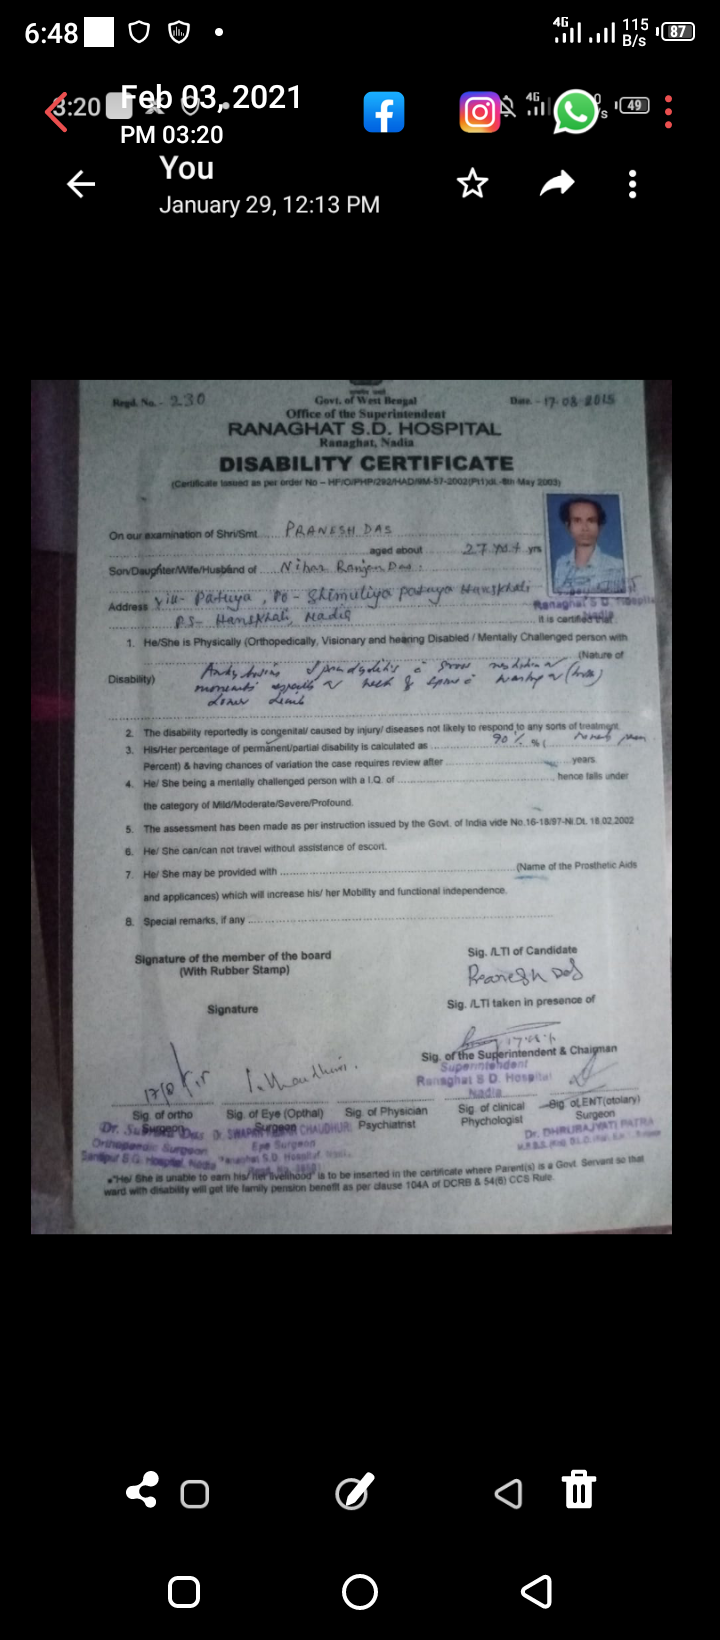 6:48
4G
115
B/s
87
3:20
Feb 03, 2021
4G
49
PM 03:20
You
January 29, 12:13 PM
Regd. No. - 230
Govt. of West Bengal
Date. - 17-08-2015
Office of the Superintendent
RANAGHAT S.D. HOSPITAL
Ranaghat, Nadia
DISABILITY CERTIFICATE
(Certificate issued as per order No – May 2003)
On our examination of Shri/Smt. PRANESH DAS
aged about 27 yrs
Son/Daughter/Wife/Husband of Nihar Ranjan Das.
Address vill- Patuya, Po- Shimuliya patuya Hanskhali
P.S- Hanskhali, Nadia
it is certified that
1. He/She is Physically (Orthopedically, Visionary and hearing Disabled / Mentally Challenged person with
(Nature of
Disability)
2. The disability reportedly is congenital/ caused by injury/ diseases not likely to respond to any sorts of treatment.
3. His/Her percentage of permanent/partial disability is calculated as 90% % (
Percent) & having chances of variation the case requires review after years.
4. He/ She being a mentally challenged person with a I.Q. of hence falls under
the category of Mild/Moderate/Severe/Profound.
5. The assessment has been made as per instruction issued by the Govt. of India vide No.16-18/97-NI.Dt. 18.02.2002
6. He/ She can/can not travel without assistance of escort.
7. He/ She may be provided with (Name of the Prosthetic Aids
and applicances) which will increase his/ her Mobility and functional independence.
8. Special remarks, if any
Signature of the member of the board
(With Rubber Stamp)
Sig. /LTI of Candidate
Pranesh Das
Signature
Sig. /LTI taken in presence of
Sig. of the Superintendent & Chaigman
Superintendent
Ranaghat S D. Hospital
Nadia
Sig. of ortho
Surgeon
Sig. of Eye (Opthal)
Surgeon
Sig. of Physician
Psychiatrist
Sig. of clinical
Phychologist
Sig. oLENT(otolary)
Surgeon
Orthopaedic Surgeon
Eye Surgeon
Dr. DHRUBAJYATI PATRA
"He/ She is unable to earn his/ her livelihood" is to be inserted in the certificate where Parent(s) is a Govt. Servant so that
ward with disability will get life family pension benefit as per clause 104A of DCRB & 54(6) CCS Rule.